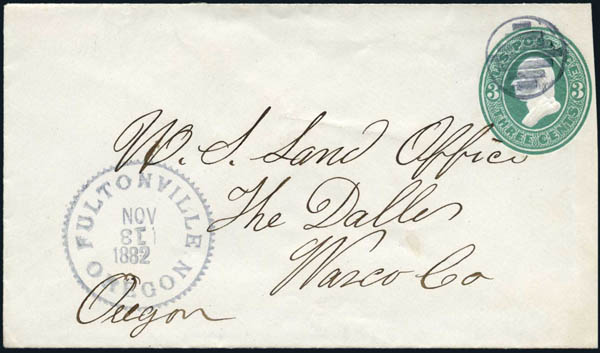 U.S. POSTAGE
3 3
THREE CENTS
U. S. Land Office
The Dalles
Wasco Co
Oregon
FULTONVILLE
NOV
1882
OREGON